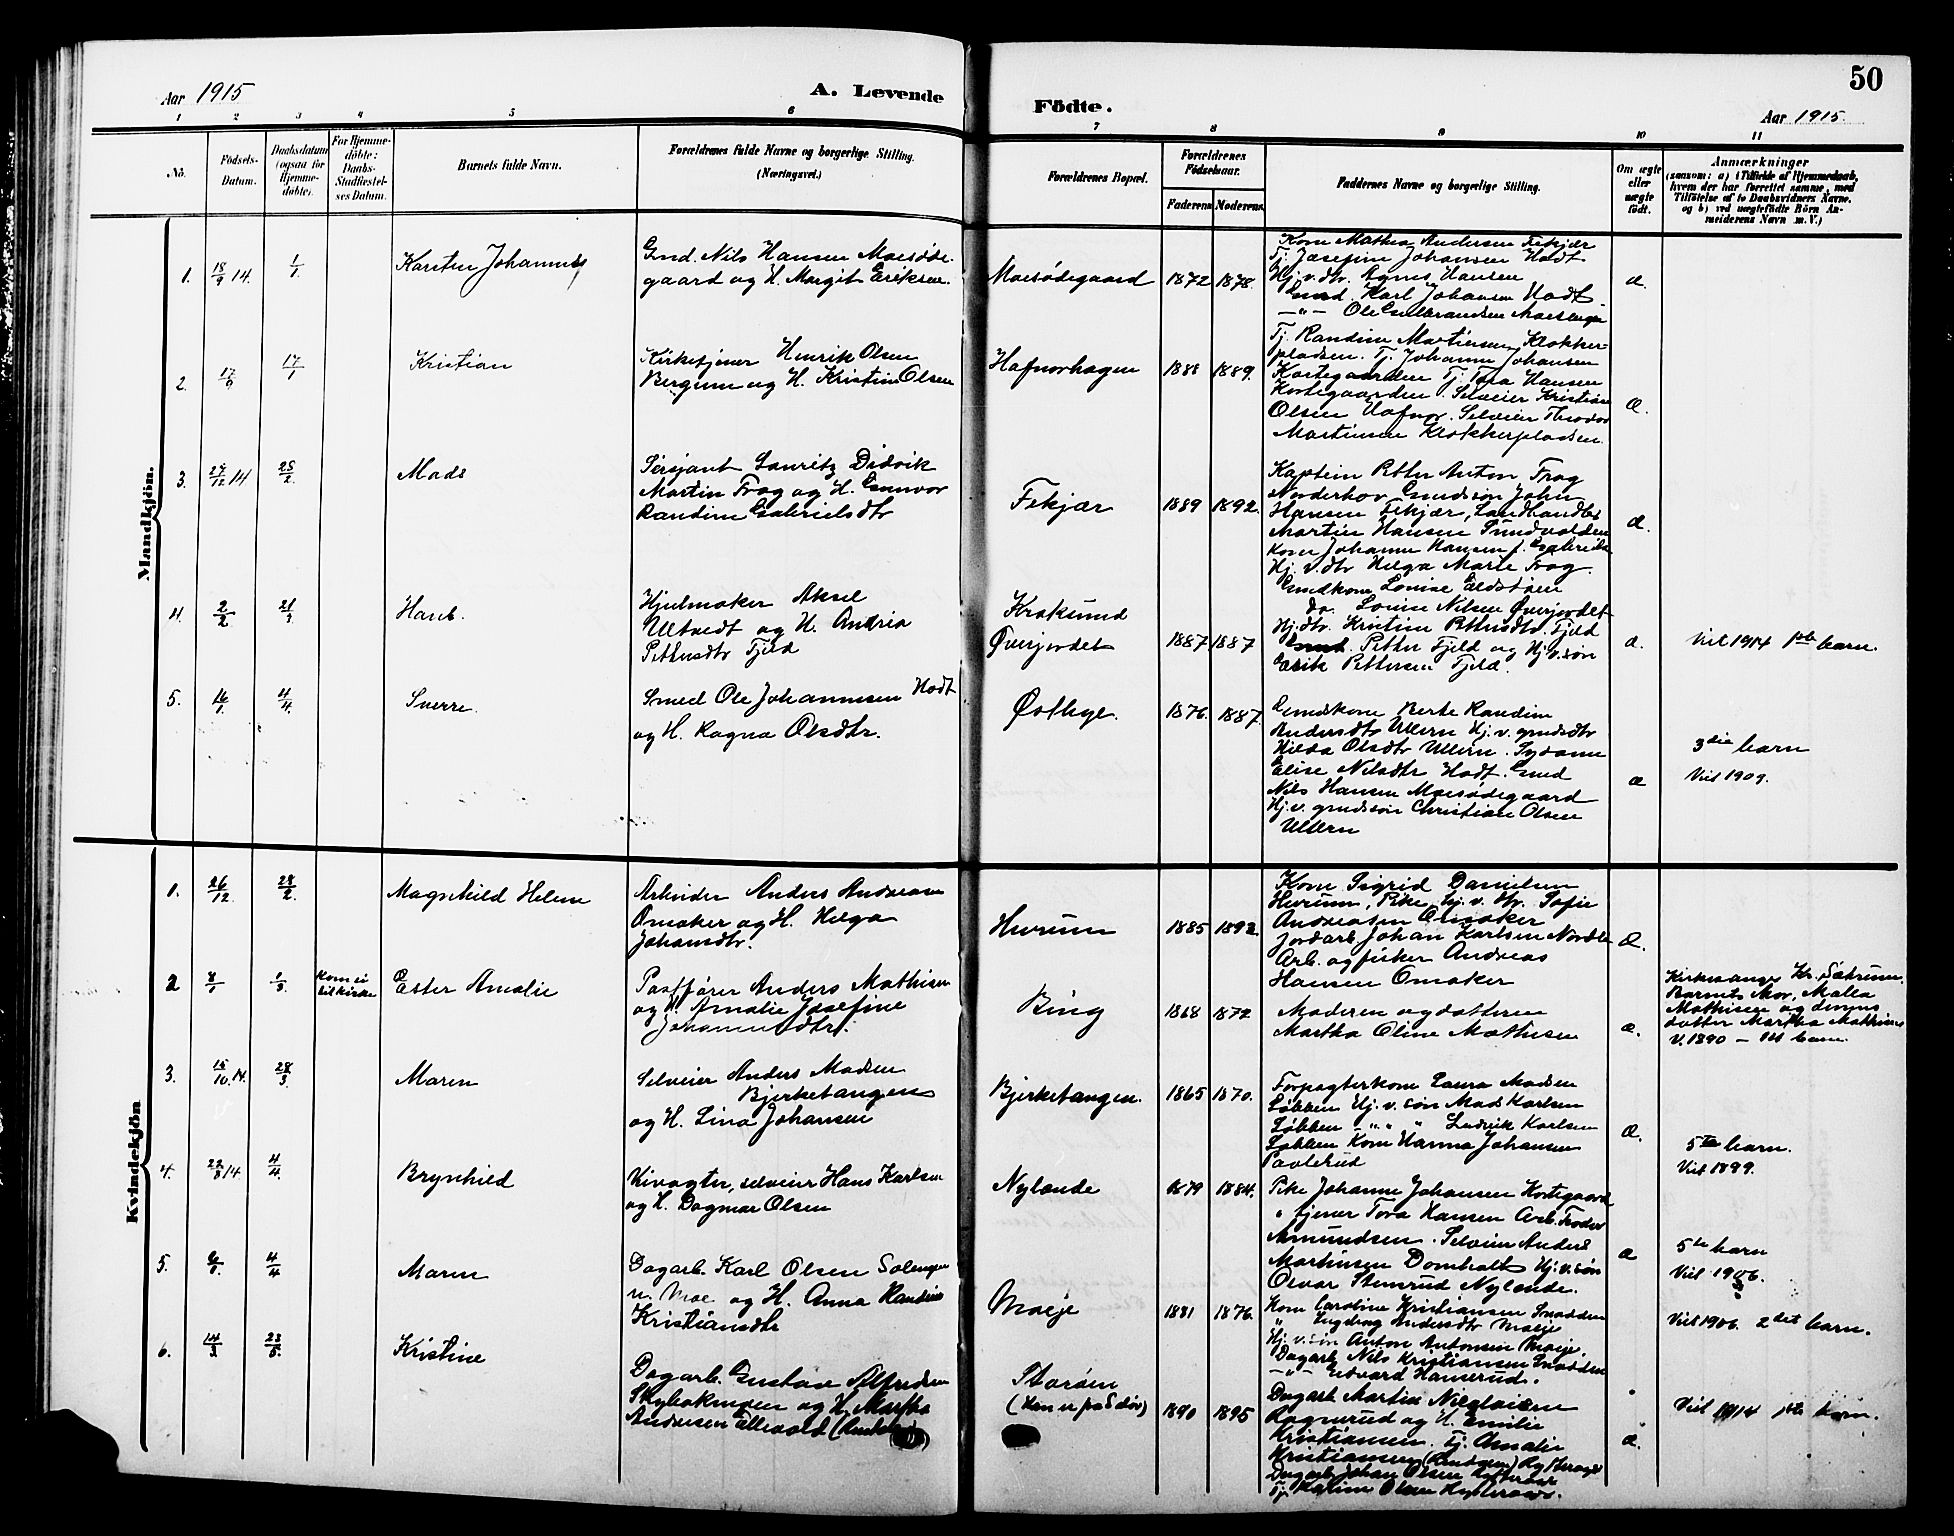 50
Aar 1915
A. Levende
Födte.
Aar 1915.
1 2 3 4 5 6 7 8 9 10 11
No.
Födsels-
Datum.
Daabsdatum
(ogsaa for
Hjemme-
döbte).
For Hjemme-
döbte:
Daabs-
Stadfæstel-
ses Datum.
Barnets fulde Navn.
Forældrenes fulde Navne og borgerlige Stilling.
(Næringsvei.)
Forældrenes Bopæl.
Forældrenes
Födselsaar.
Faderens Moderens
Faddernes Navne og borgerlige Stilling.
Om ægte
eller
uægte
födt.
Anmærkninger
(saasom: a) i Tilfælde af Hjemmedaab,
hvem der har forrettet samme, med
Tilföielse af to Daabsvidners Navne,
og b) ved uægtefödte Börn An-
melderens Navn m. V.)
Mandkjön.
1. 18/9 14 1/1 Karsten Johannes
Gmd. Nils Hansen Moesøde-
gaard og H. Margit Eriksen.
Moesødegaard 1872 1878.
Kone Mathea Andersen Fekjær
Tj. Josefine Johansen Hodt
Hj. v. dtr. Agnes Hansen
Gmd. Karl Johansen Hodt
—"— Ole Gulbrandsen
æ.
2. 17/1 Kristian
Kirketjener Henrik Olsen
Bergum og H. Kristine Olsen
Hafnorhagen 188 1889.
Tj. Randine Martinsen Klokker-
pladsen. Tj. Johanne Johansen
Kortegaarden Tj. Tora Hansen
Kortegaarden. Selveier Kristian
Olsen Hafnor. Selveier Theodor
Martinsen Klokkerpladsen.
Æ.
3. 27/12 14 25/2. Mads
Sersjant Lauritz Didrik
Martin Frog og H. Gunvor
Randine Gabrielsdtr
Fekjær 1889 1892.
Kaptein Petter Anton Frog
Norderhov Gmdsøn John
Hansen Fekjær, Landhandler
Martin Hansen Sundvolden
Kone Johanne Hansen f.
Hj. v. dtr Helga Marie Frog.
æ.
4. 2/2 21/3
Hjulmaker Aksel
Ultvedt og H. Andrea
Pettersdtr Fjeld
Kroksund
Øverjordet 1887. 1887
Gmdkone Louise
do. Louise Nilsen Øverjordet
Hj. dtr. Kristine Pettersdtr. Fjeld
Gmd. Petter Fjeld og Hj. v. søn
Erik Pettersen Fjeld.
æ.
Viet 1914 1ste barn.
5. 16/1. 4/4. Sverre.
Smed Ole Johannesen Hodt
og H. Ragna Olsdtr.
Østbye. 1876. 1887.
Gmdskone Berte Randine
Andersdtr Ullern Hj. v. gmdsdtr
Hilda Olsdtr Ullern.
Elise Nilsdtr Hodt. Gmd
Nils Hansen Moesødegaard
Hj. v. gmdssøn Christian Olsen
Ullern
æ
3die barn
Viet 1909.
Kvindekjön
1. 26/12 28/2. Magnhild Helene
Arbeider Anders Andreasen
Omaker og H. Helga
Johansdtr.
Hurum 1885 1892.
Kone Sigrid Danielsen
Hurum, Pike hj. v. dtr. Sofie
Andreasen Omaker
Jordarb. Johan Karlsen
Arb. og fisker Andreas
Hansen Omaker
Æ.
2 8/1 1/3 Kom ei
til kirke Ester Amalie
Postfører Anders Mathisen
og H. Amalie Josefine
Johannesdtr.
Bing 1868 1872
Moderen og datteren
Martha Oline Mathisen
æ.
Kirkesanger Kr. Sætrum.
Barnets Mor, Malla
Mathisen og dennes
datter Martha Mathisen
V. 1890 —
3. 15/10. 14. 28/3 Maren
Selveier Anders Madsen
Bjerketangen
og H. Lina Johansen
Bjerketangen. 1865 1870.
Forpagterkone Laura Madsen
Løkken Hj. v. søn Mads Karlsen
Løkken —"— " Ludvik Karlsen
Løkken Kone Hanna Johansen
Æ.
5te barn.
Viet 1899.
4. 22/3 14. 4/4. Brynhild
Veivogter, selveier Hans Karlsen
og H. Dagmar Olsen
Nylænde 1879 1884.
Pike Johanne Johansen Kortegaard
" tjener Tora Hansen Arb.
Amundsen. Selveier Anders
Martinsen Domholt Hj. v. søn
Olvar Stensrud Nylænde.
æ
5te barn
Viet 1906.
5. 4/4 Maren
Dagarb. Karl Olsen
og H. Anna Randine
Kristiansdtr
Moeje 1881 1876.
Kone Caroline Kristiansen
" Ingeborg Andersdtr Moeje
Hj. v. søn Anton Antonsen Moeje.
Dagarb. Nils Kristiansen
—"— Edvard Hanserud.
Viet 1906. 2det barn.
6. 14/3 23/5. Kristine
Dagarb. Gustav Alfredsen
og H. Martha
Andresen
Storøen
1890 1895
Dagarb. Martin Nicolaisen
Rognerud og H. Emilie
Kristiansen. Tj. Amalie
Kristiansen
Dagarb. Johan Olsen
Tj. Karine Olsen
æ.
Viet 1914 1ste barn.